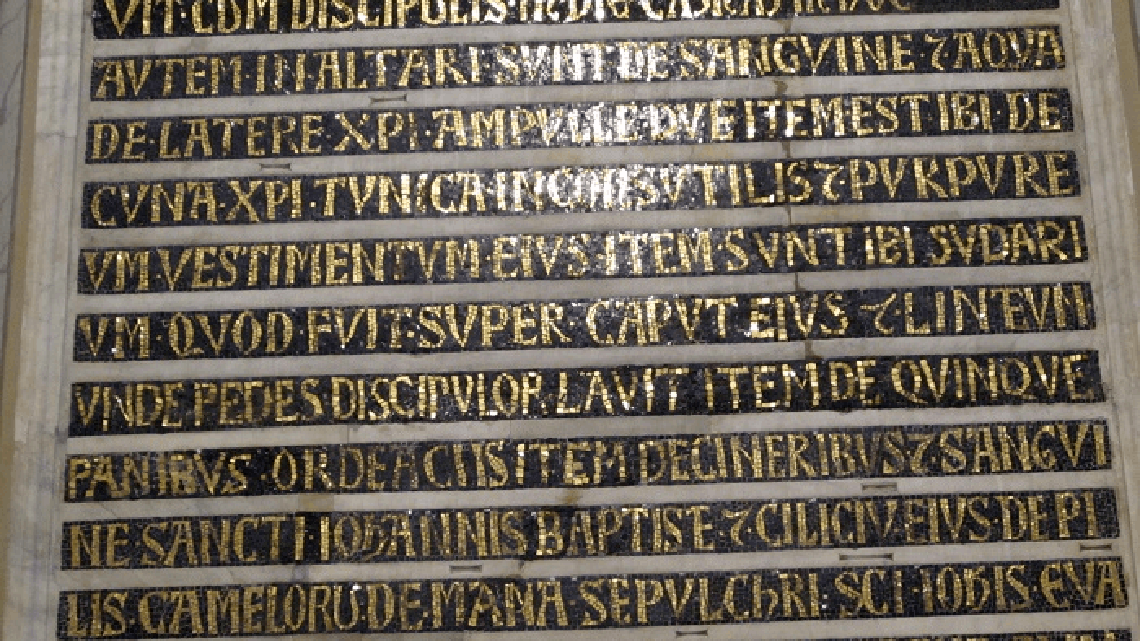 VIT·CUM DISCIPULIS
AVTEM·IN ALTARI·SVNT·DE SANGVINE·⁊AQVA
DE·LATERE·XPI·AMPVLLE DVE ITEM EST IBI·DE
CVNA·XPI·TVNICA INCONSVTILIS⁊PVRPVRE
VM·VESTIMENTVM·EIVS·ITEM·SVNT IBI SVDARI
VM·QVOD·FVIT·SVPER·CAPVT EIVS ⁊LINTEVM
VNDE PEDES DISCIPVLOR LAVIT ITEM DE QVINQVE
PANIBVS ORDEACIIS ITEM DE CINERIBVS⁊SANGVI
NE·SANCTI·IOHANNIS BAPTISTE ⁊CILICIV·EIVS·DE PI
LIS·CAMELORU·DE MANA SEPVLCHRI SCI·IOHIS·EVA